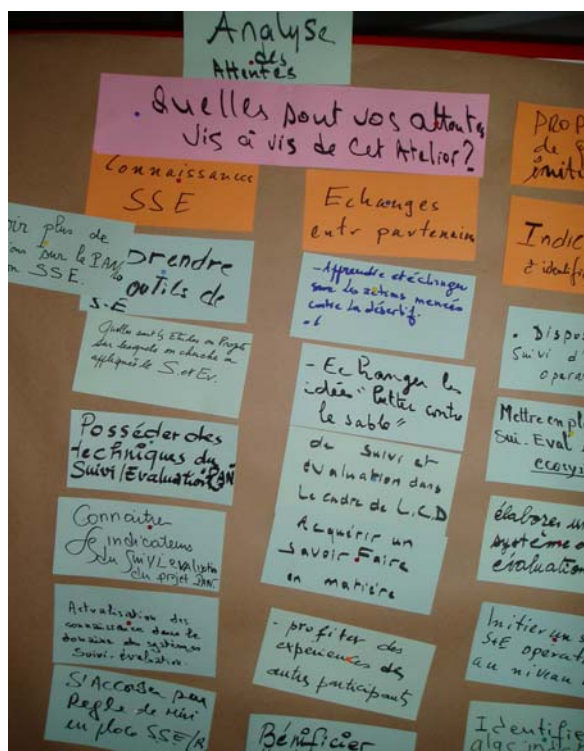 Analyse
des
Attentes
. Quelles sont vos attentes
vis à vis de cet Atelier?
Connaissances
SSE
oir plus de
ions sur le PAN/
on SSE.
prendre
outils de
S-E
Quelles sont les Etudes ou Projets
sur lesquels on cherche à
appliquer le S. et Ev.
Posséder des
techniques du
Suivi/Evaluation PAN
Connaitre
indicateurs
du Suivi/evaluation
du projet PAN.
Actualisation des
connaissances dans le
domaine du système
Suivi-évaluation.
S'Accorder sur
Regle de
en place SSE/
Echanges
entr partenaires
- Apprendre et échanger
sur les actions menées
contre la désertif.
- Echanger les
idées "lutter contre
le sable"
de suivi et
évaluation dans
le cadre de L.C.D
Acquérir un
Savoir-Faire
en matière
- profiter des
expériences des
autres participants
Bénificier
PROP
de
initi
Indic
à identifi
. Dispo
Suivi
opera
Mettre en pl
Sui-Eval
ecosys
élaborer un
système
évaluation
Initier un
S+E opérat
au niveau
Identifie